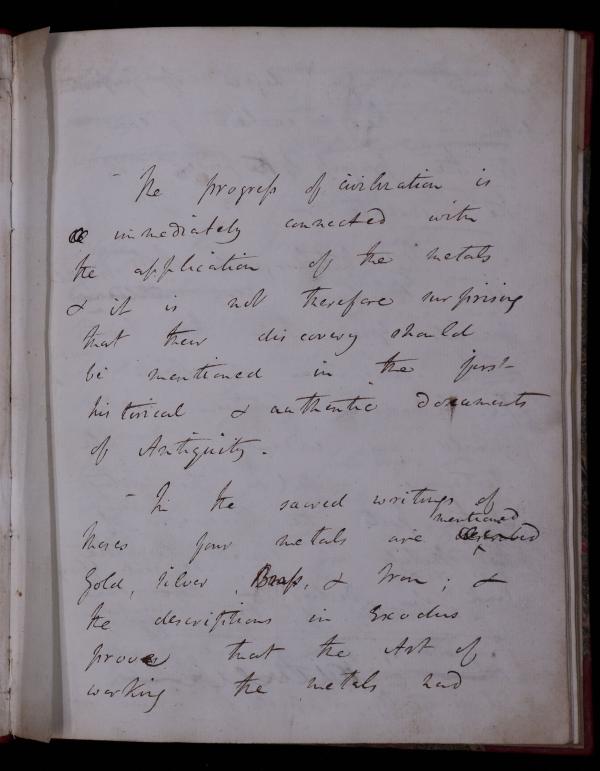 - The progress of civilization is
immediately connected with
the application of the metals
& it is not therefore surprising
that their discovery should
be mentioned in the first
historical & authentic documents
of Antiquity. 
- In the sacred writings of
mentioned
Moses four metals are described
Gold, Silver, Brass, & Iron; &
the descriptions in Exodus
prove that the Art of
working the metals had